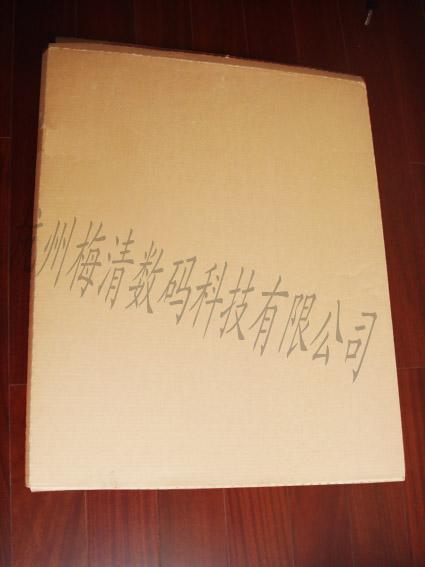 州梅清数码科技有限公司